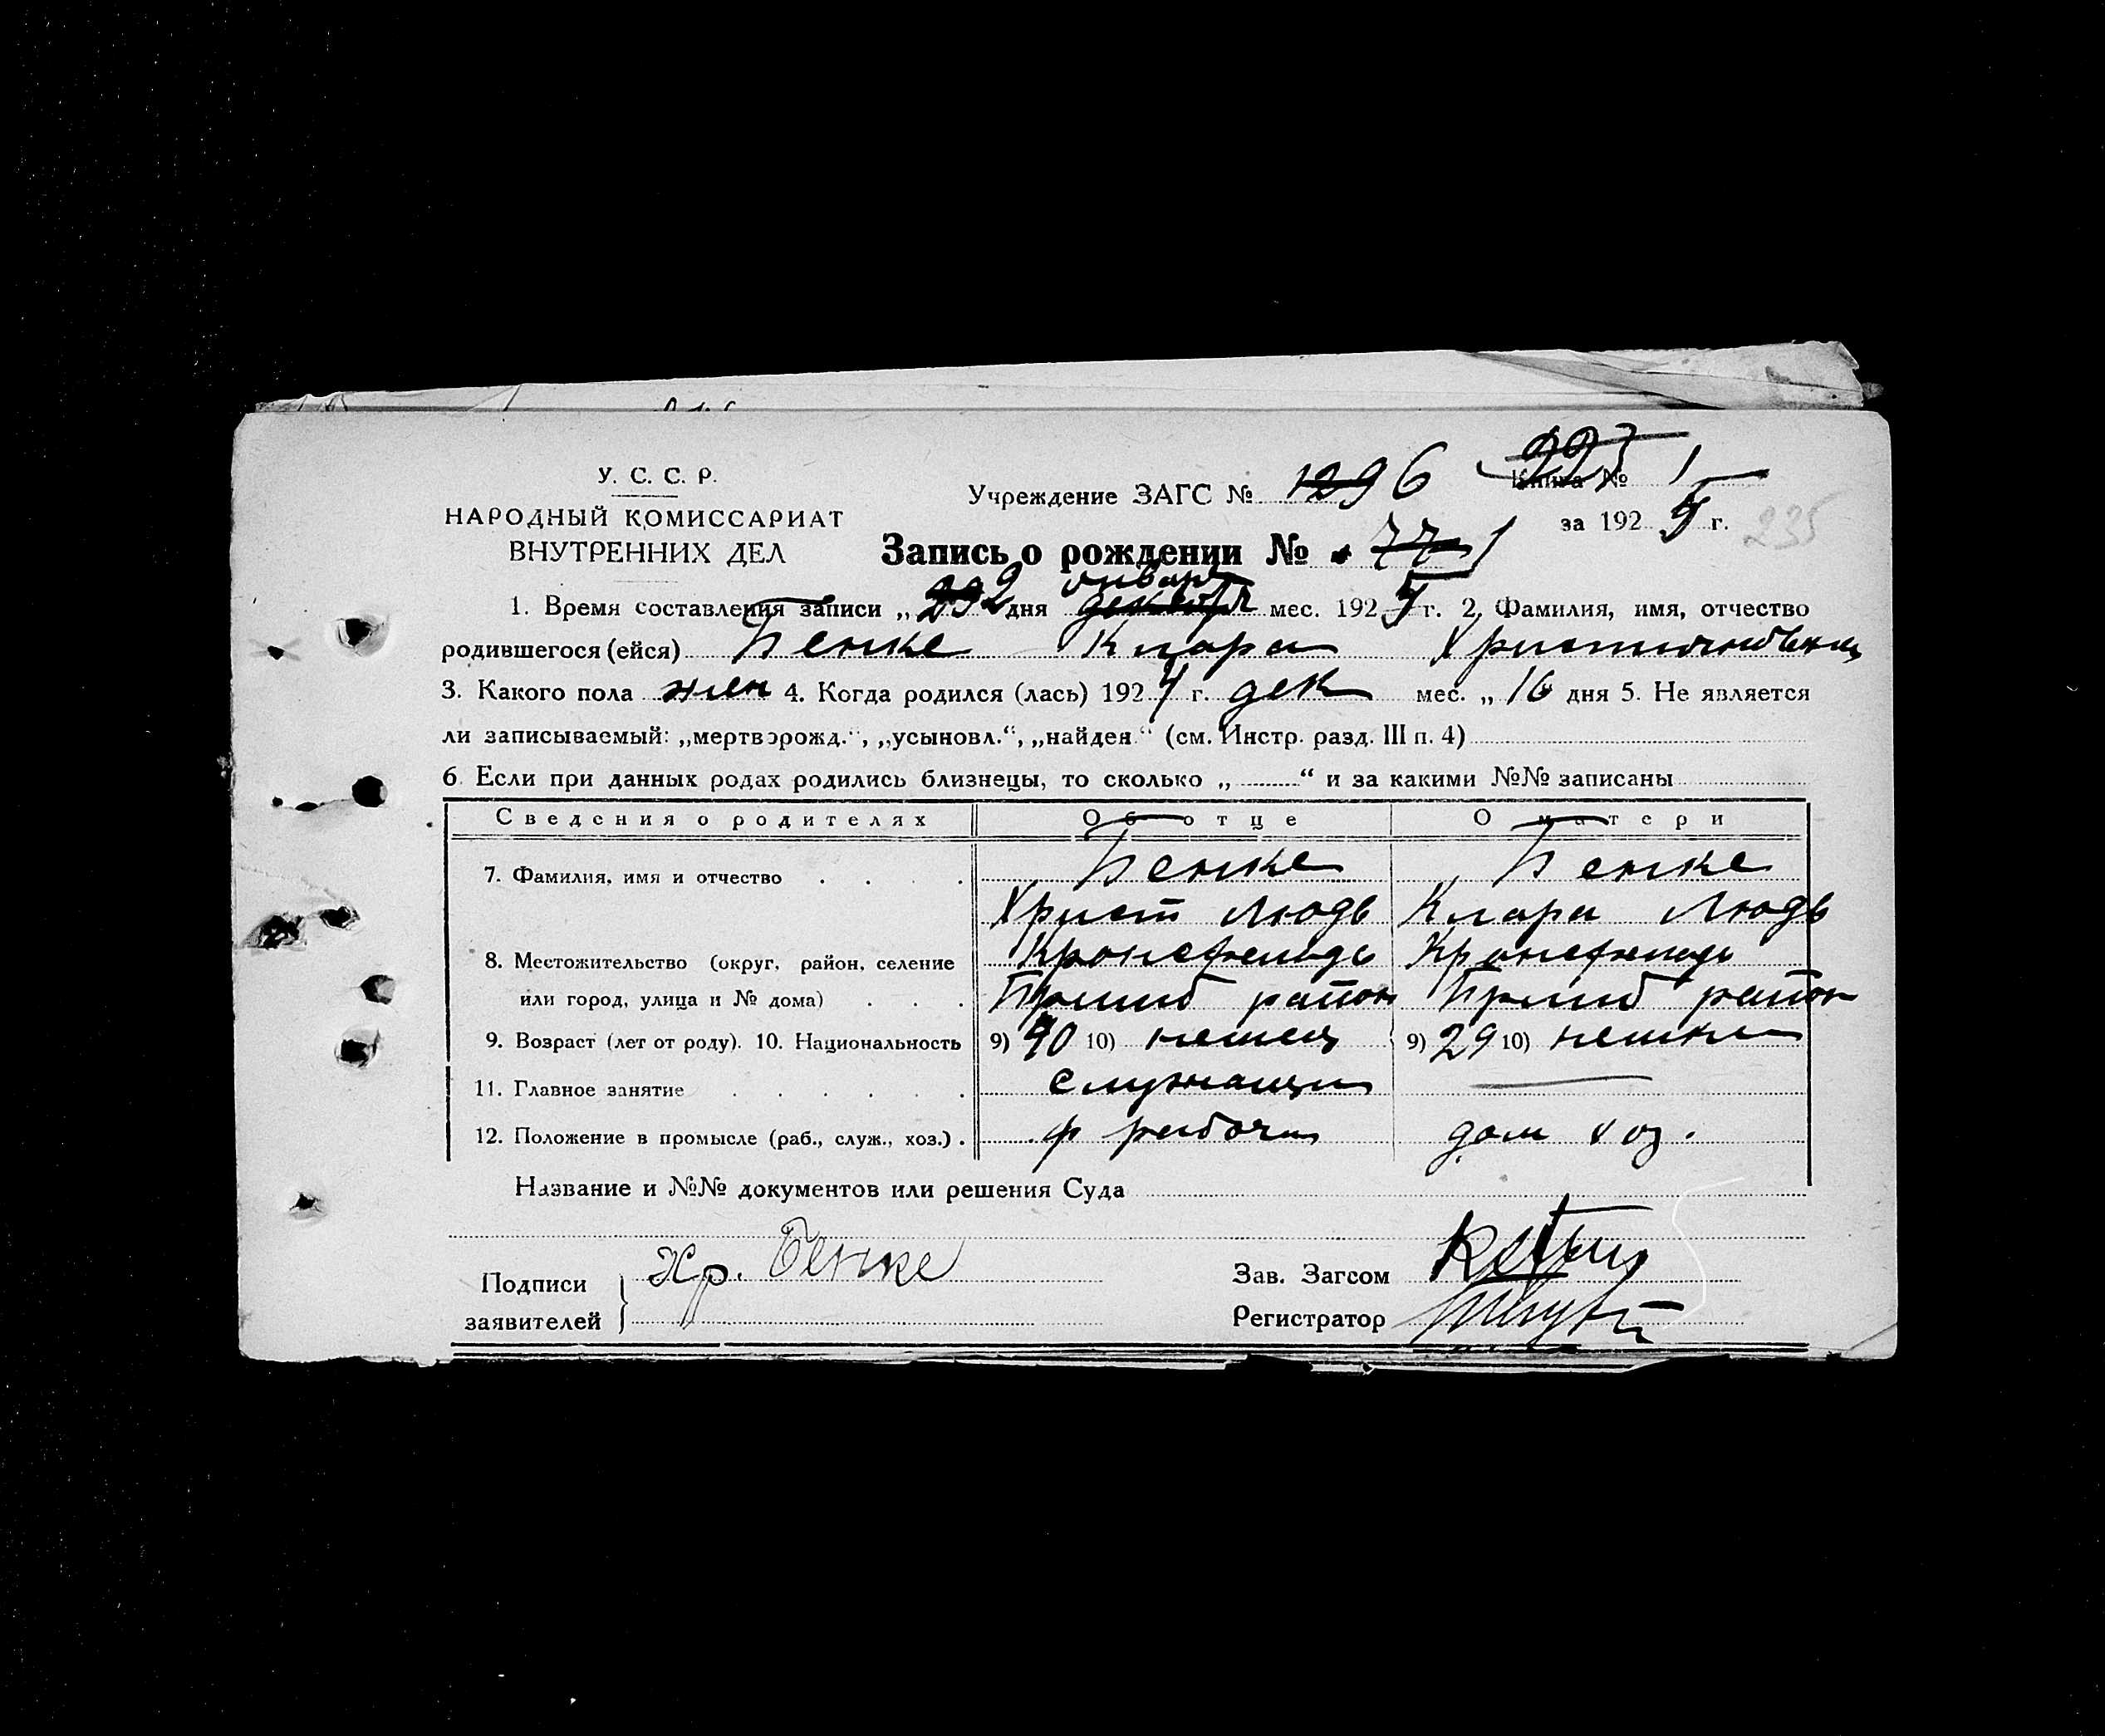 У. С. С. Р.
НАРОДНЫЙ КОМИССАРИАТ
ВНУТРЕННИХ ДЕЛ
Учреждение ЗАГС № 1296
Книга № 1
за 1925 г. 235
Запись о рождении № 77 1
1. Время составления записи „ 2 дня января декабря мес. 1925 г. 2, Фамилия, имя, отчество
родившегося (ейся) Бенке Клара Христиановна
3. Какого пола жен 4. Когда родился (лась) 1924 г. дек мес. „ 16 дня 5. Не является
ли записываемый: „мертворожд.“, „усыновл.“, „найден“ (см. Инстр. разд. III п. 4)
6. Если при данных родах родились близнецы, то сколько „ “ и за какими №№ записаны
Сведения о родителях Об отце О матери
7. Фамилия, имя и отчество Бенке Бенке
Христ Людв Клара Людв
8. Местожительство (округ, район, селение Кронсфельд Кронсфельд
или город, улица и № дома) Пришиб район Пришиб район
9. Возраст (лет от роду). 10. Национальность 9) 40 10) немец 9) 29 10) немка
11. Главное занятие служащий
12. Положение в промысле (раб., служ., хоз.) ф рабочий дом хоз.
Название и №№ документов или решения Суда
Подписи заявителей Хр. Бенке
Зав. Загсом
Регистратор